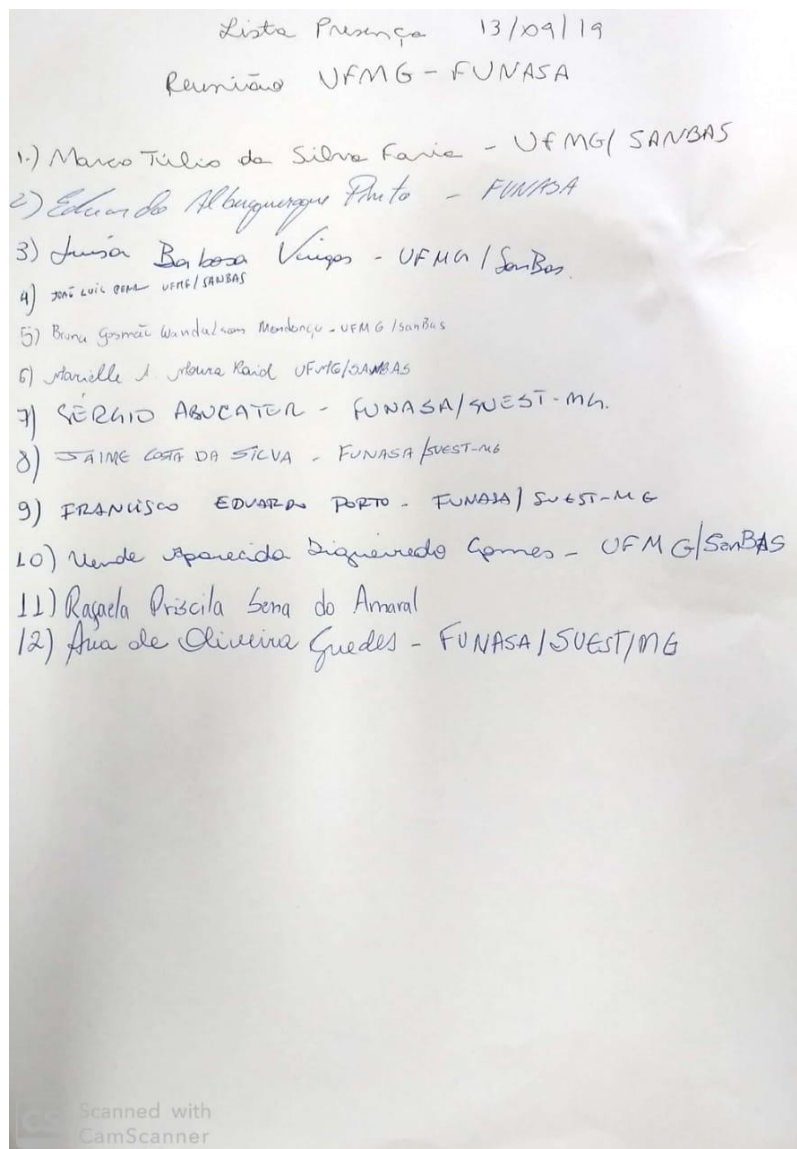 Lista Presença 13/09/19
Reunião UFMG - FUNASA
1.) Marco Túlio da Silva Faria - UFMG/ SANBAS
2) Eduardo Albuquerque - FUNASA
3) Luisa Barbosa - UFMG / SanBas.
4) JOÃO LUIS PENA UFMG/SANBAS
5) Bruna Mendonça - UFMG /SanBas
6) Marielle A. Moura UFMG/SANBAS
7) SÉRGIO ABUCATER - FUNASA/SUEST-MG.
8) JAIME COSTA DA SILVA - FUNASA/SUEST-MG
9) FRANCISCO EDUARDO PORTO - FUNASA/ SUEST-MG
10) Aparecida Figueiredo Gomes - UFMG/SanBAS
11) Rafaela Priscila Sena do Amaral
12) Ana de Oliveira Guedes - FUNASA/SUEST/MG
CS Scanned with
CamScanner